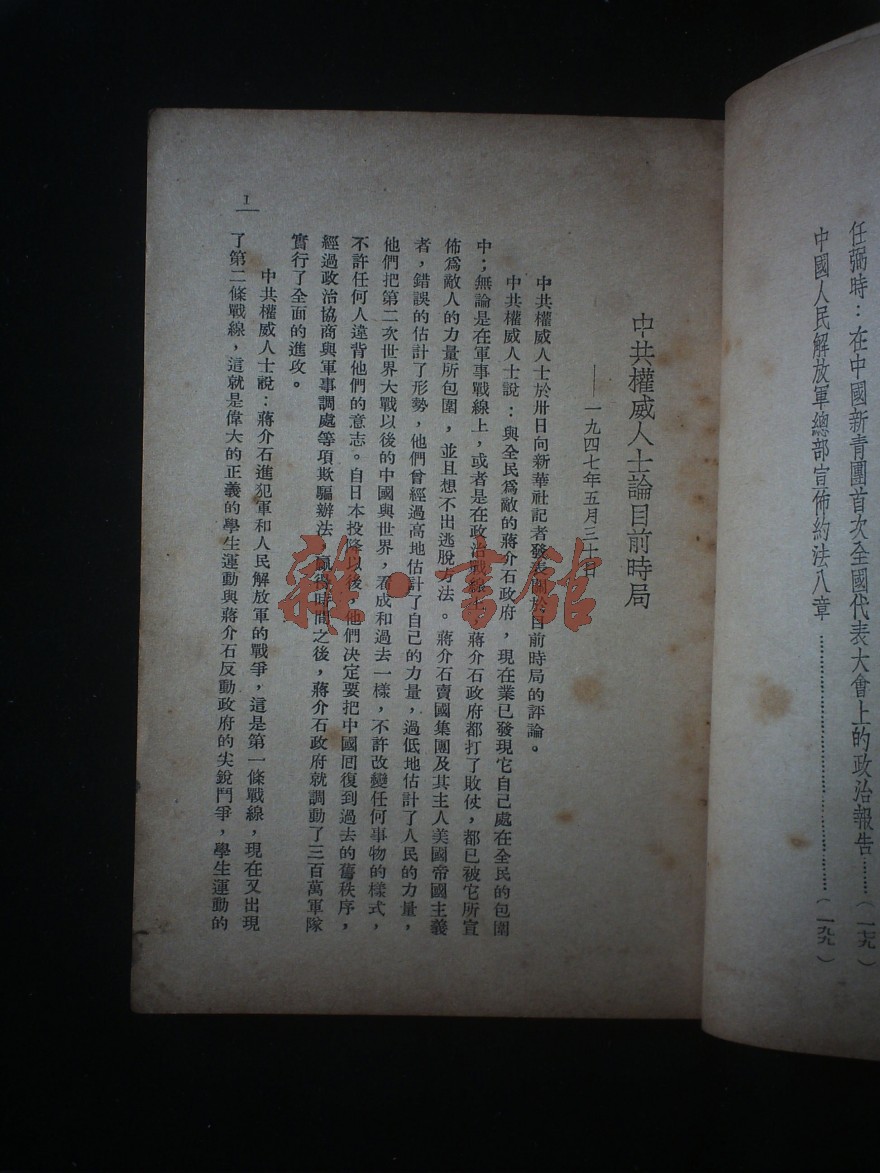 任弼時：在中國新青團首次全國代表大會上的政治報告………（一七九）
中國人民解放軍總部宣佈約法八章……………………（一九九）
中共權威人士論目前時局
——一九四七年五月三十日
中共權威人士於卅日向新華社記者發表關於目前時局的評論。
中共權威人士說：與全民為敵的蔣介石政府，現在業已發現它自己處在全民的包圍
中；無論是在軍事戰線上，或者是在政治戰線上，蔣介石政府都打了敗仗，都已被它所宣
佈爲敵人的力量所包圍，並且想不出逃脫方法。蔣介石賣國集團及其主人美國帝國主義
者，錯誤的估計了形勢，他們曾經過高地估計了自己的力量，過低地估計了人民的力量，
他們把第二次世界大戰以後的中國與世界，看成和過去一樣，不許改變任何事物的樣式，
不許任何人違背他們的意志。自日本投降以後，他們決定要把中國囘復到過去的舊秩序，
經過政治協商與軍事調處等項欺騙辦法，贏得時間之後，蔣介石政府就調動了三百萬軍隊
實行了全面的進攻。
中共權威人士說：蔣介石進犯軍和人民解放軍的戰爭，這是第一條戰線，現在又出現
了第二條戰線，這就是偉大的正義的學生運動與蔣介石反動政府的尖銳鬥爭，學生運動的
1
雜·書館